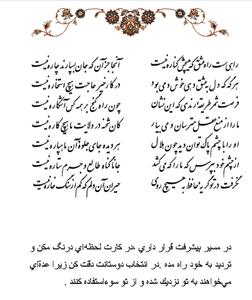 راهی‌ست راه عشق که هیچش کناره نیست آنجا جز آن که جان بسپارند چاره نیست
هر گه که دل به عشق دهی خوش دمی بود در کار خیر حاجت هیچ استخاره نیست
فرصت شمر طریقه رندی که این نشان چون راه گنج بر همه کس آشکاره نیست
ما را ز منع عقل مترسان و می بیار کان شحنه در ولایت ما هیچ کاره نیست
او را به چشم پاک توان دید چون هلال هر دیده جای جلوه آن ماه پاره نیست
از چشم خود بپرس که ما را که می‌کشد جانا گناه طالع و جرم ستاره نیست
نگرفت در تو گریه حافظ به هیچ روی حیران آن دلم که کم از سنگ خاره نیست
در مسیر پیشرفت قرار داری ،در کارت لحظه‌ای درنگ مکن و
تردید به خود راه مده .در انتخاب دوستانت دقت کن زیرا عده‌ای
می‌خواهند به تو نزدیک شده و از تو سوءاستفاده کنند .